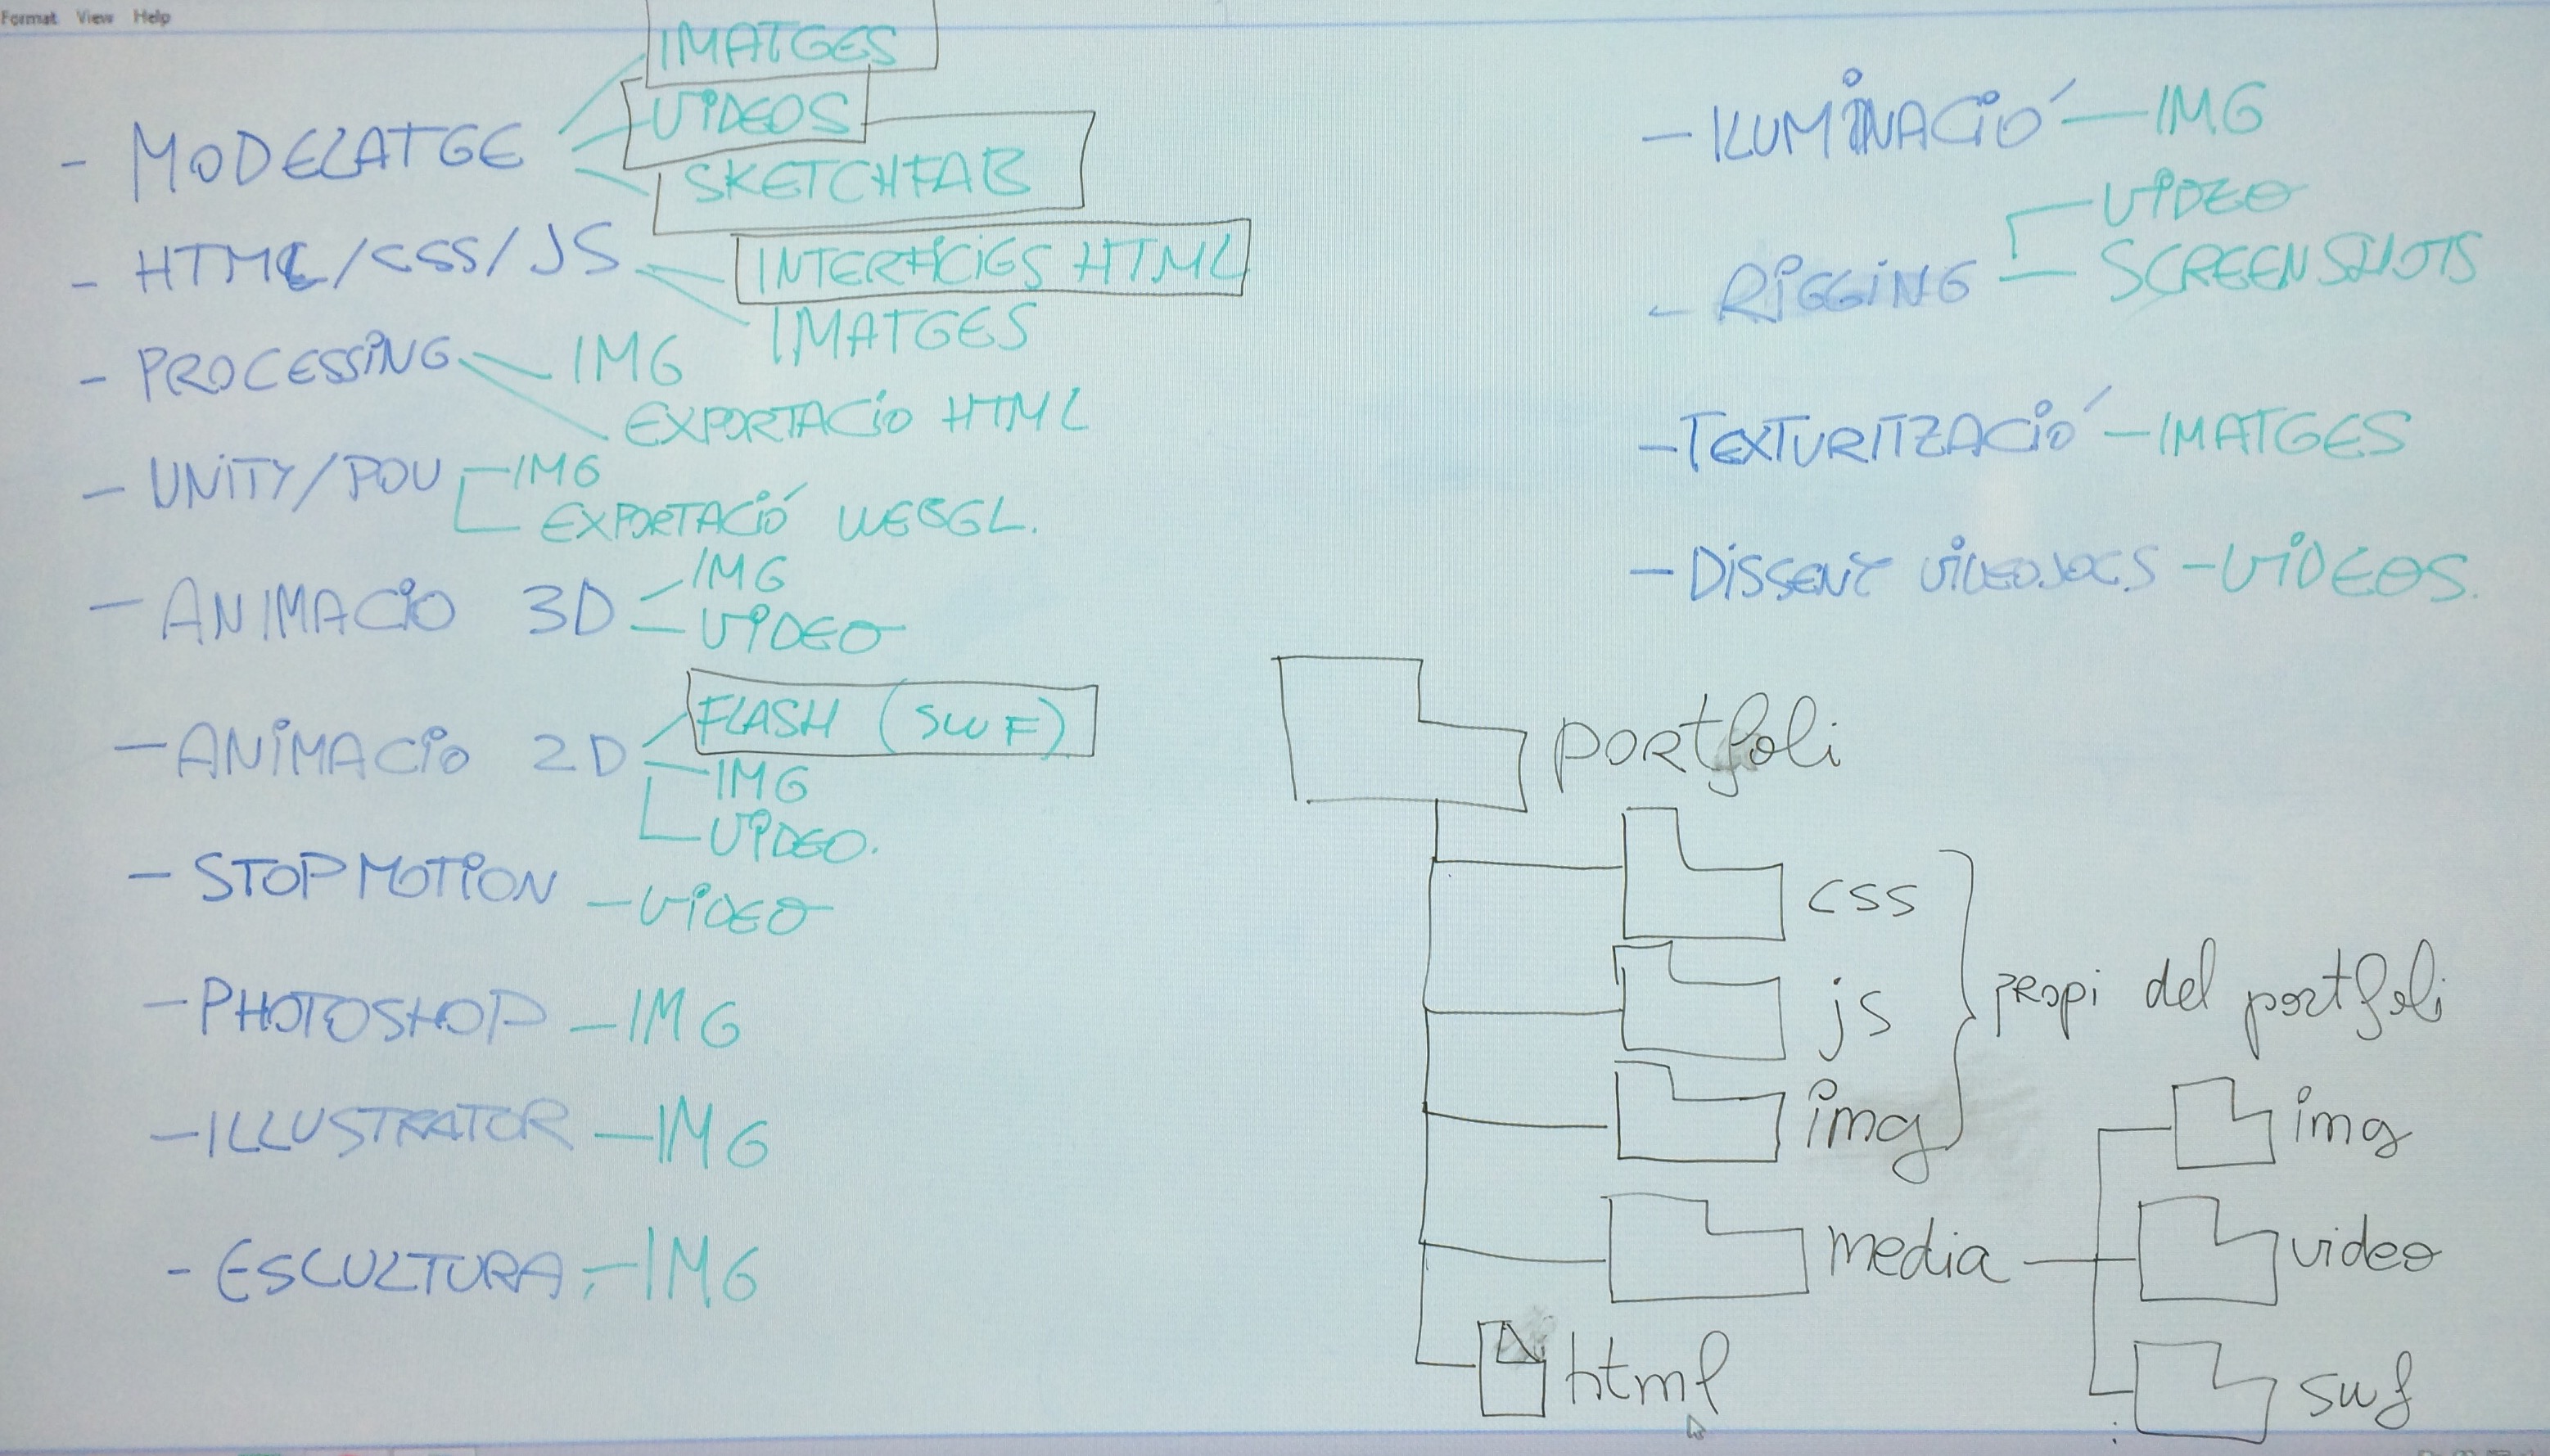 Format View Help
- MODELATGE
IMATGES
VIDEOS
SKETCHFAB
- HTML/CSS/JS
INTERFICIES HTML
IMATGES
- PROCESSING
IMG
EXPORTACIO HTML
- UNITY/POU
IMG
EXPORTACIÓ WEBGL.
- ANIMACIO 3D
IMG
VIDEO
- ANIMACIO 2D
FLASH (SWF)
IMG
VIDEO.
- STOP MOTION - VIDEO
- PHOTOSHOP - IMG
- ILLUSTRATOR - IMG
- ESCULTURA - IMG
- ILUMINACIÓ - IMG
- RIGGING
VIDEO
SCREENSHOTS
- TEXTURITZACIÓ - IMATGES
- DISSENY VIDEOJOCS - VIDEOS.
portfoli
css
js
img
propi del portfoli
media
img
video
swf
html